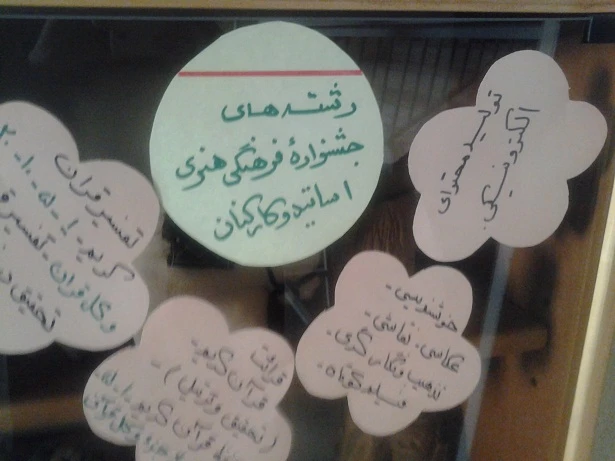 رشته های
جشنوارهٔ فرهنگی هنری
اساتید و کارکنان
تولید محتوای
الکترونیکی.
خوشنویسی.
عکاسی. نقاشی.
تذهیب و نگارگری.
فیلم کوتاه.
تفسیر قرآن
کریم. ۱-۵-۱۰-۲۰
و کل قرآن. تفسیر
قرائت
قرآن کریم.
(تحقیق و ترتیل).
قرآن کریم. ۱.۵.